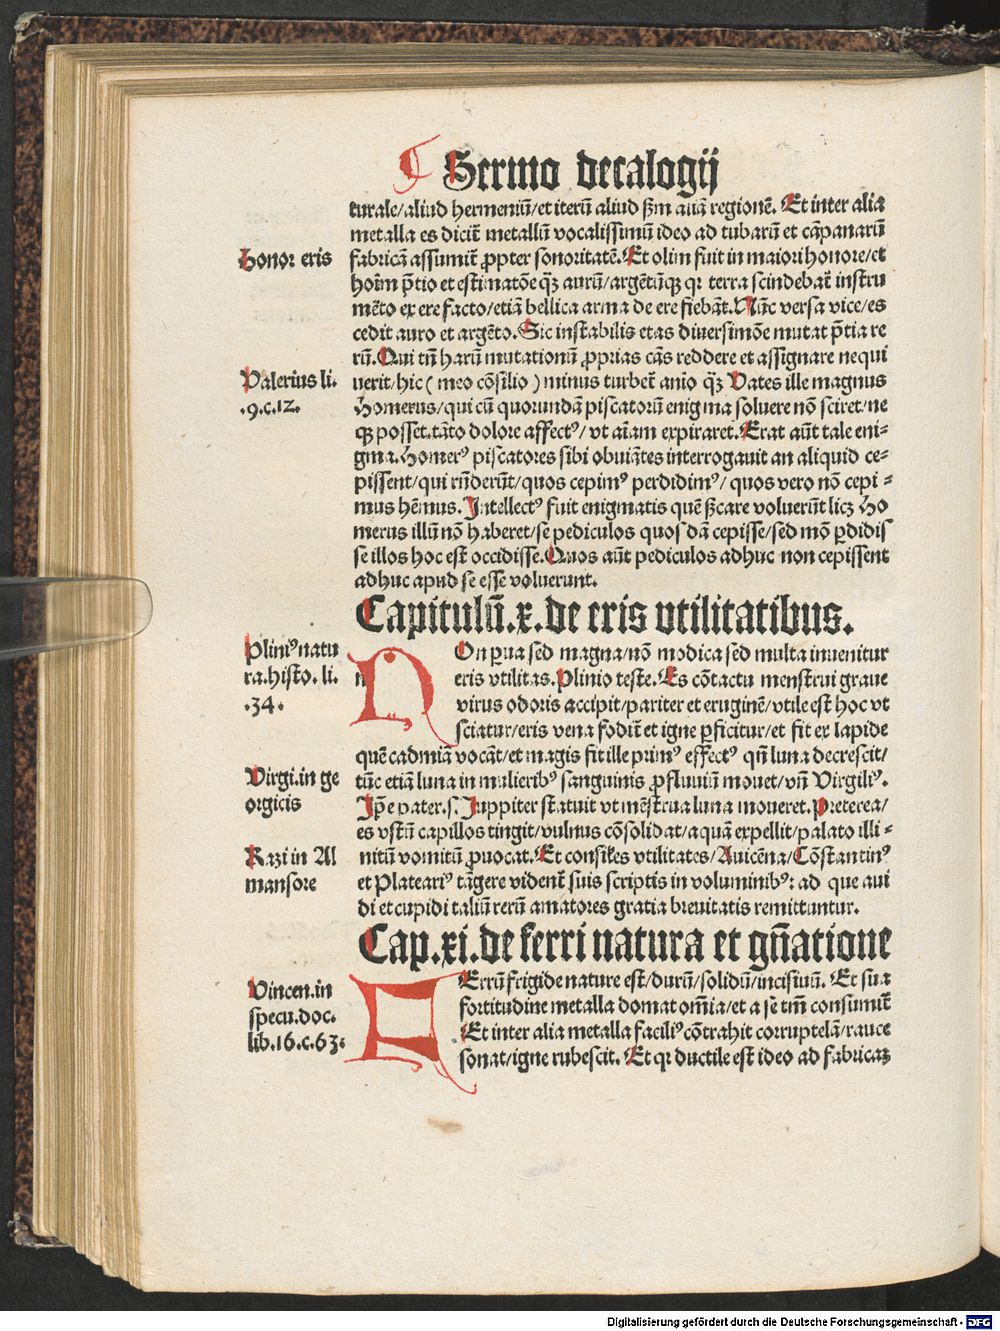 Sermo decalogij
turale/aliud hermeniū/et iterū aliud ẜm aliā regionē. Et inter alia
metalla es dicit᷑ metallū vocalissimū ideo ad tubarū et cāpanarū
Honor eris
fabricā assumit᷑ ꝓpter sonoritatē. Et olim fuit in maiori honore/et
hoīm p̄tio et estimatōe qꝫ aurū/argētūqꝫ qꝛ terra scindebat᷑ instru
mēto ex ere facto/etiā bellica arma de ere fiebāt. Nūc versa vice/es
cedit auro et argēto. Sic instabilis etas diuersimōe mutat p̄tia re
rū. Qui tn̄ harū mutationū ꝓprias cās reddere et assignare nequi
Valerius li.
.9.c.12.
uerit/hic ( meo cōsilio ) minus turbet᷑ anīo qꝫ Vates ille magnus
Homerus/qui cū quorundā piscatorū enigma soluere nō sciret/ne
qꝫ posset. tāto dolore affectꝰ/ vt aīam expiraret. Erat aūt tale eni-
gma. Homerꝰ piscatores sibi obuiātes interrogauit an aliquid ce-
pissent/qui rn̄derūt/quos cepimꝰ perdidimꝰ/ quos vero nō cepi-
mus hēmus. Intellectꝰ fuit enigmatis quē ẜcare voluerūt licꝫ Ho
merus illū nō haberet/se pediculos quosdā cepisse/sed mō ꝑdidis
se illos hoc est occidisse. Quos aūt pediculos adhuc non cepissent
adhuc apud se esse voluerunt.
Capitulū.x.de eris vtilitatibus.
Pliniꝰ natu
ra.histo. li.
.34.
NOn ꝑua sed magna/nō modica sed multa inuenitur
eris vtilitas. Plinio teste. Es cōtactu menstrui graue
virus odoris accipit/pariter et eruginē/vtile est hoc vt
sciatur/eris vena fodit᷑ et igne ꝑficitur/et fit ex lapide
quē cadmiā vocāt/et magis fit ille primꝰ effectꝰ qn̄ luna decrescit/
Virgi.in ge
orgicis
tūc etiā luna in mulieribꝰ sanguinis ꝓfluuiū mouet/vn̄ Virgiliꝰ.
Ip̄e pater.s. Juppiter statuit vt mēstrua luna moueret. Preterea/
es vstū capillos tingit/vulnus cōsolidat/aquā expellit/palato illi-
Razi in Al
mansore
nitū vomitū ꝓuocat. Et consiłes vtilitates/Auicēna/Cōstantinꝰ
et Plateariꝰ tāgere vident᷑ suis scriptis in voluminibꝰ: ad que aui
di et cupidi taliū rerū amatores gratia breuitatis remittuntur.
Cap.xi.de ferri natura et gn̄atione
Vincen.in
specu.doc.
lib.16.c.63.
FErrū frigide nature est/durū/solidū/incisiuū. Et sua
fortitudine metalla domat om̄ia/et a se tm̄ consumit᷑
Et inter alia metalla faciliꝰ cōtrahit corruptelā/rauce
sonat/igne rubescit. Et qꝛ ductile est ideo ad fabricaꝫ
Digitalisierung gefördert durch die Deutsche Forschungsgemeinschaft - DFG